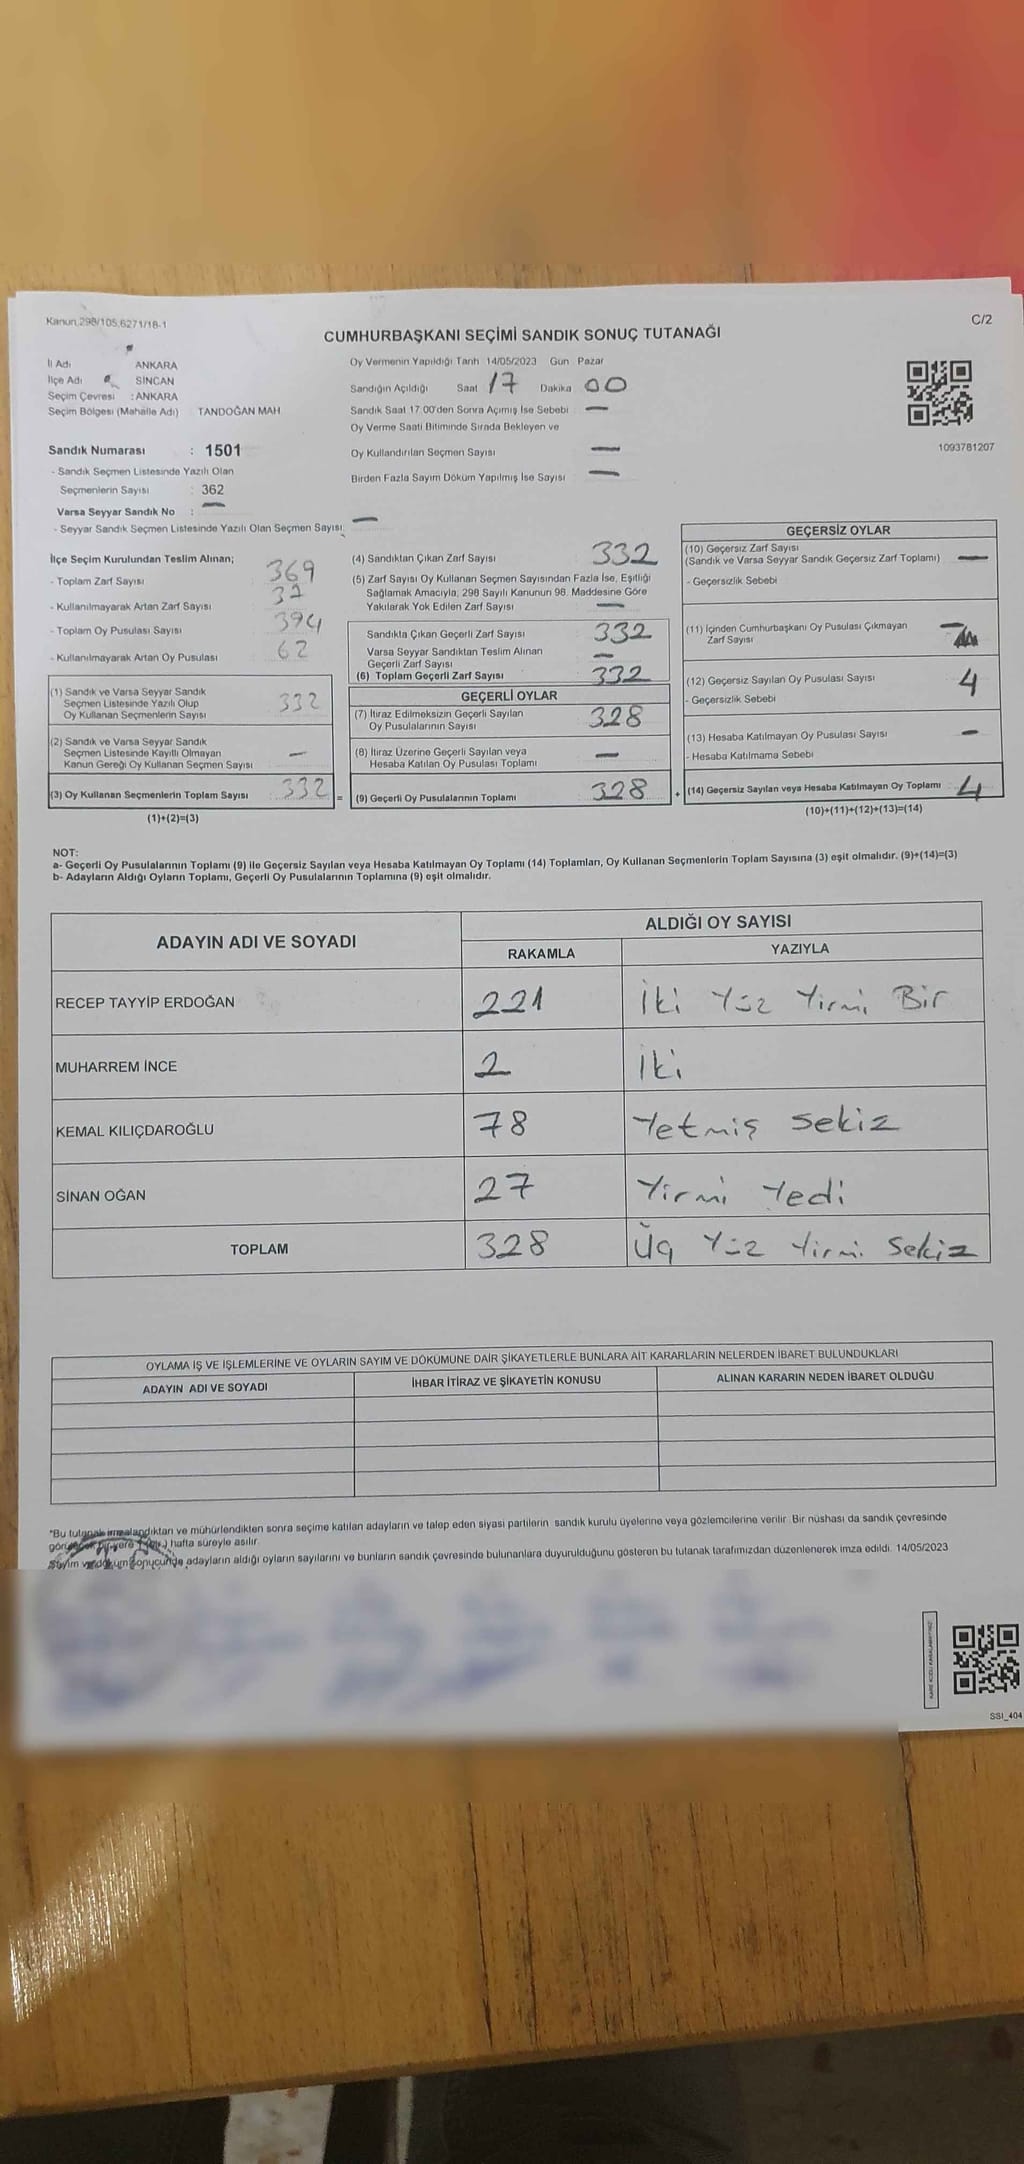 Kanun.298/105,6271/18-1
C/2
CUMHURBAŞKANI SEÇİMİ SANDIK SONUÇ TUTANAĞI
İl Adı ANKARA
İlçe Adı SİNCAN
Seçim Çevresi : ANKARA
Seçim Bölgesi (Mahalle Adı) TANDOĞAN MAH
Sandık Numarası : 1501
- Sandık Seçmen Listesinde Yazılı Olan
Seçmenlerin Sayısı : 362
Varsa Seyyar Sandık No : —
- Seyyar Sandık Seçmen Listesinde Yazılı Olan Seçmen Sayısı: —
Oy Vermenin Yapıldığı Tarih 14/05/2023 Gün Pazar
Sandığın Açıldığı Saat 17 Dakika 00
Sandık Saat 17.00'den Sonra Açımış İse Sebebi : —
Oy Verme Saati Bitiminde Sırada Bekleyen ve
Oy Kullandırılan Seçmen Sayısı —
Birden Fazla Sayım Döküm Yapılmış İse Sayısı : —
1093781207
İlçe Seçim Kurulundan Teslim Alınan;
- Toplam Zarf Sayısı 369
- Kullanılmayarak Artan Zarf Sayısı 37
- Toplam Oy Pusulası Sayısı 394
- Kullanılmayarak Artan Oy Pusulası 62
(1) Sandık ve Varsa Seyyar Sandık
Seçmen Listesinde Yazılı Olup
Oy Kullanan Seçmenlerin Sayısı 332
(2) Sandık ve Varsa Seyyar Sandık
Seçmen Listesinde Kayıtlı Olmayan
Kanun Gereği Oy Kullanan Seçmen Sayısı —
(3) Oy Kullanan Seçmenlerin Toplam Sayısı 332 =
(1)+(2)=(3)
(4) Sandıktan Çıkan Zarf Sayısı 332
(5) Zarf Sayısı Oy Kullanan Seçmen Sayısından Fazla İse, Eşitliği
Sağlamak Amacıyla, 298 Sayılı Kanunun 98. Maddesine Göre
Yakılarak Yok Edilen Zarf Sayısı —
Sandıkta Çıkan Geçerli Zarf Sayısı 332
Varsa Seyyar Sandıktan Teslim Alınan
Geçerli Zarf Sayısı —
(6) Toplam Geçerli Zarf Sayısı 332
GEÇERLİ OYLAR
(7) İtiraz Edilmeksizin Geçerli Sayılan
Oy Pusulalarının Sayısı 328
(8) İtiraz Üzerine Geçerli Sayılan veya
Hesaba Katılan Oy Pusulası Toplamı —
(9) Geçerli Oy Pusulalarının Toplamı 328 +
GEÇERSİZ OYLAR
(10) Geçersiz Zarf Sayısı
(Sandık ve Varsa Seyyar Sandık Geçersiz Zarf Toplamı) —
- Geçersizlik Sebebi
(11) İçinden Cumhurbaşkanı Oy Pusulası Çıkmayan
Zarf Sayısı —
(12) Geçersiz Sayılan Oy Pusulası Sayısı 4
- Geçersizlik Sebebi
(13) Hesaba Katılmayan Oy Pusulası Sayısı —
- Hesaba Katılmama Sebebi
(14) Geçersiz Sayılan veya Hesaba Katılmayan Oy Toplamı 4
(10)+(11)+(12)+(13)=(14)
NOT:
a- Geçerli Oy Pusulalarının Toplamı (9) ile Geçersiz Sayılan veya Hesaba Katılmayan Oy Toplamı (14) Toplamları, Oy Kullanan Seçmenlerin Toplam Sayısına (3) eşit olmalıdır. (9)+(14)=(3)
b- Adayların Aldığı Oyların Toplamı, Geçerli Oy Pusulalarının Toplamına (9) eşit olmalıdır.
ADAYIN ADI VE SOYADI
ALDIĞI OY SAYISI
RAKAMLA YAZIYLA
RECEP TAYYİP ERDOĞAN 221 İki Yüz Yirmi Bir
MUHARREM İNCE 2 İki
KEMAL KILIÇDAROĞLU 78 Yetmiş Sekiz
SİNAN OĞAN 27 Yirmi Yedi
TOPLAM 328 Üç Yüz Yirmi Sekiz
OYLAMA İŞ VE İŞLEMLERİNE VE OYLARIN SAYIM VE DÖKÜMÜNE DAİR ŞİKAYETLERLE BUNLARA AİT KARARLARIN NELERDEN İBARET BULUNDUKLARI
ADAYIN ADI VE SOYADI İHBAR İTİRAZ VE ŞİKAYETİN KONUSU ALINAN KARARIN NEDEN İBARET OLDUĞU
*Bu tutanak imzalandıktan ve mühürlendikten sonra seçime katılan adayların ve talep eden siyasi partilerin sandık kurulu üyelerine veya gözlemcilerine verilir. Bir nüshası da sandık çevresinde
hafta süreyle asılır.
Sayım ve döküm sonucunda adayların aldığı oyların sayılarını ve bunların sandık çevresinde bulunanlara duyurulduğunu gösteren bu tutanak tarafımızdan düzenlenerek imza edildi. 14/05/2023
SSI_404